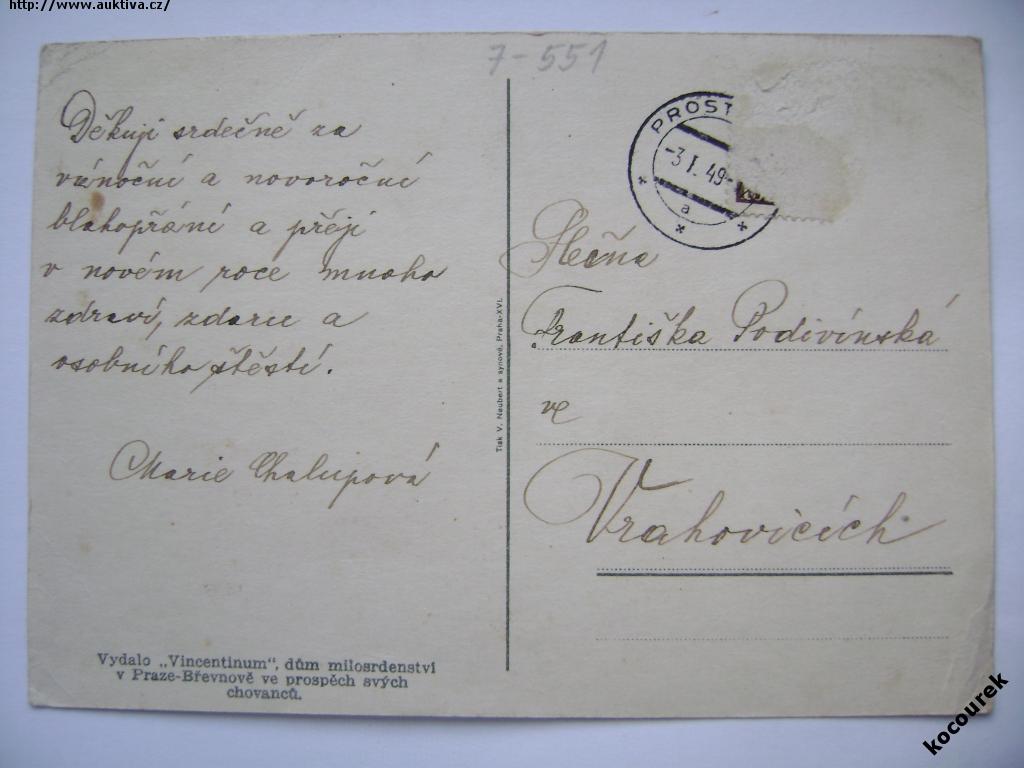 http://www.auktiva.cz/
7-551
Děkuji srdečně za
vánoční a novoroční
blahopřání a přeji
v novém roce mnoho
zdraví, zdaru a
osobního štěstí.
Marie Chalupová
Vydalo „Vincentinum", dům milosrdenství
v Praze-Břevnově ve prospěch svých
chovanců.
Tisk V. Neubert a synové, Praha-XVI.
PROST
-3.I.49-
a
Slečna
Františka Podivínská
ve
Vrahovicích
kocourek